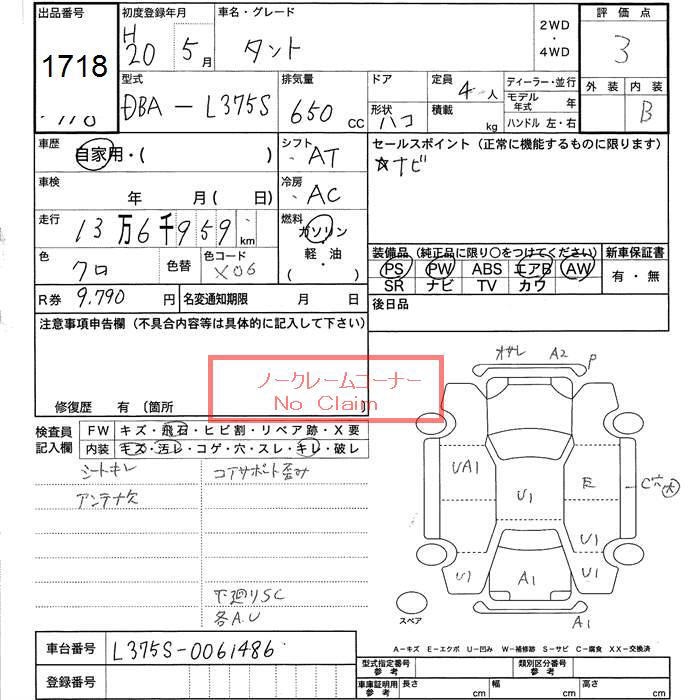 出品番号 初度登録年月 車名・グレード 2WD ・ 4WD 評価点
1718 H 20 5月 タント 3
型式 排気量 ドア 定員 ディーラー・並行 外装 内装
DBA-L375S 650 CC 形状 ハコ 4人 積載 kg モデル年式 年 B
ハンドル 左・右
車歴 自家用・( ) シフト AT セールスポイント (正常に機能するものに限ります)
☆ナビ
車検 年 月 ( 日) 冷房 AC
走行 13万6千959 km 燃料 ガソリン・軽・油・( )
色 クロ 色替 色コード X06
装備品 (純正品に限り○をつけてください) 新車保証書
PS PW ABS エアB AW 有・無
SR ナビ TV カワ
R券 9,790 円 名変通知期限 月 日 後日品
注意事項申告欄 (不具合内容等は具体的に記入して下さい)
ノークレームコーナー
No Claim
修復歴 有 〔箇所
検査員記入欄 FW キズ・飛石・ヒビ割・リペア跡・X要
内装 キズ・汚レ・コゲ・穴・スレ・キレ・破レ
シートキレ コアサポート歪み
アンテナ欠
下廻りSC
各A.U
A2 P
UA1 U1 E C穴
U1 U1 U1
A1
A1
スペア
A-キズ E-エクボ U-凹み W-補修跡 S-サビ C-腐食 XX-交換済
車台番号 L375S-0061486
登録番号
型式指定番号 参考 類別区分番号 参考
車庫証明用 参考 長さ cm 幅 cm 高さ cm